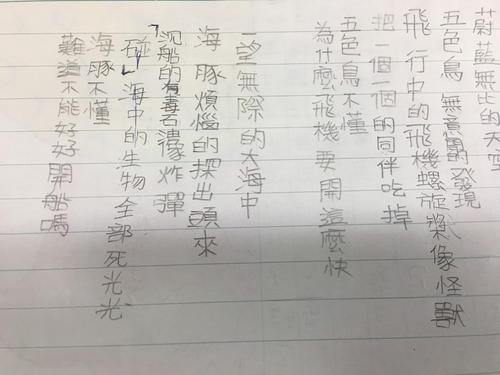 蔚藍無比的天空
五色鳥 無意間的發現
飛行中的飛機螺旋槳像怪獸
把一個一個的同伴吃掉
五色鳥不懂
為什麼飛機要開這麼快
一望無際的大海中
海豚煩惱的探出頭來
沉船的有毒石像炸彈
碰 海中的生物全部死光光
海豚不懂
難道不能好好開船嗎